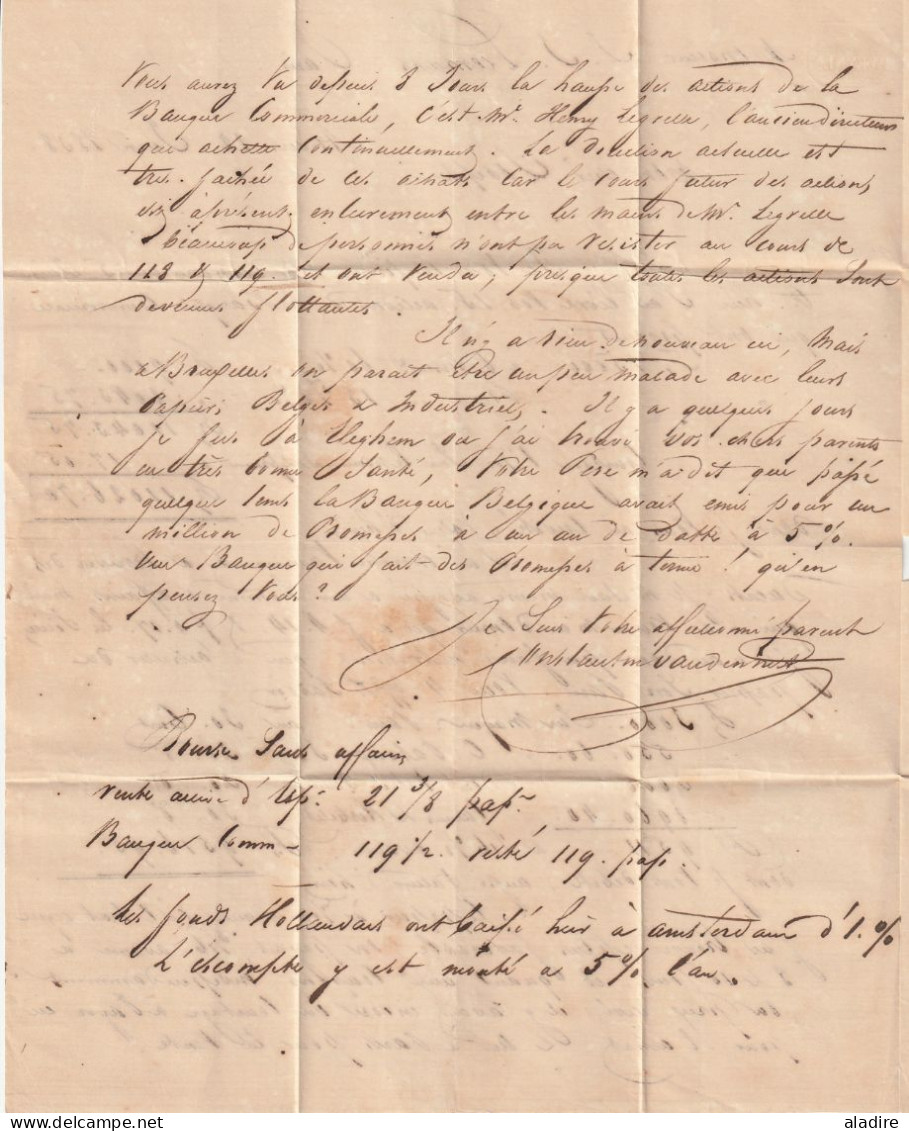 Vous aurez vu depuis 8 Jours la hausse des actions de la
Banque Commerciale, c'est Mr. Henry Legrelle, l'ancien directeur
que achette continuellement. La direction actuelle est
très fachée de ces achats car le cours futur des actions
est àprésent entierement entre les mains de Mr. Legrelle
beaucoup de personnes n'ont pu resister au cours de
118 & 119. et ont vendu; presque toutes les actions sont
devenues flottantes.
Il n'y a rien de nouveau ici, mais
a Bruxelles on parait être un peu malade avec leurs
papiers Belges & Industriels. Il y a quelques jours
je fus à Eleghem ou j'ai trouvé vos chers parents
en très bonne santé, Votre Père m'a dit que passé
quelque tems la Banque Belgique avait emis pour un
million de Promesses à un an de datte à 5%.
une Banque qui fait des Promesses à terme! qu'en
pensez vous?
Je suis Votre affectionné parent
Constantin vanden
Bourse sans affaires
rente active d'Esp. 21 3/8 pap.
Banque Comm- 119 1/2 resté 119. pap.
Les fonds Hollandais ont baissé hier à amsterdam d'1.%
L'escompte y est monté a 5% l'an.
aladire